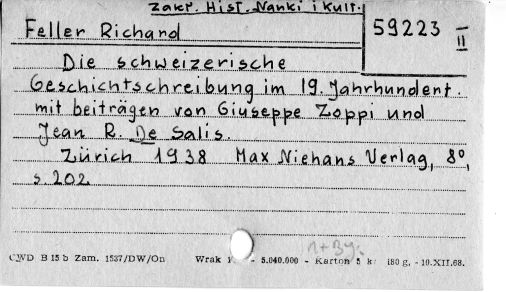 Zakr. Hist. Nauki i Kult.
Feller Richard
59223
II
Die schweizerische
Geschichtschreibung im 19. Jahrhundert.
mit beiträgen von Giuseppe Zoppi und
Jean R. De Salis.
Zürich 1938 Max Niehans Verlag, 8º,
s. 202
1+By.
CWD B 15 b Zam. 1537/DW/On Wrak - 5.040.000 - Karton 5 k 180 g. - 10.XII.68.